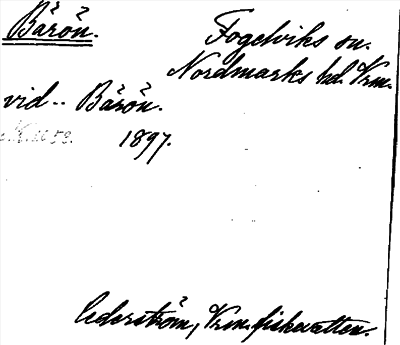 Bärön.
Fogelviks sn.
Nordmarks hd. Vrm.
vid -- Bärön.
1897.
Cederström, Vrm. fiskevatten.